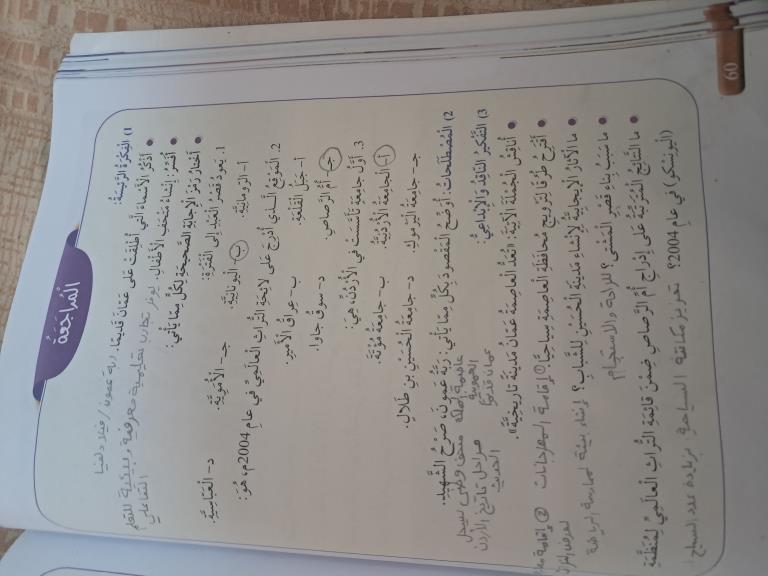 المُرَاجَعَةُ
1) الْفِكْرَةُ الرَّئِيسَةُ:
• أَذْكُرُ الْأَسْمَاءَ الَّتِي أُطْلِقَتْ عَلَى عَمَّانَ قَدِيمًا. ربة عمون / فيلادلفيا
• أُفَسِّرُ: إِنْشَاءَ مُتْحَفِ الْأَطْفَالِ. يوفر تجارب تعليمية معرفية للتعلم
التفاعلي
• أَخْتَارُ رَمْزَ الْإِجَابَةِ الصَّحِيحَةِ لِكُلٍّ مِمَّا يَأْتِي:
1. يَعُودُ قَصْرُ الْعَبْدِ إِلَى الْفَتْرَةِ:
أ- الرُّومَانِيَّةِ. ب- الْيُونَانِيَّةِ. جـ- الْأُمَوِيَّةِ. د- الْعَبَّاسِيَّةِ.
2. الْمَوْقِعُ الَّذِي أُدْرِجَ عَلَى لَائِحَةِ التُّرَاثِ الْعَالَمِيِّ فِي عَامِ 2004م، هُوَ:
أ- جَبَلُ الْقَلْعَةِ. ب- عِرَاقُ الْأَمِيرِ.
جـ- أُمُّ الرَّصَاصِ. د- سوقُ جاوا.
3. أَوَّلُ جَامِعَةٍ تَأَسَّسَتْ فِي الْأُرْدُنِّ، هِيَ:
أ- الْجَامِعَةُ الْأُرْدُنِيَّةُ. ب- جَامِعَةُ مُؤْتَةَ.
جـ- جَامِعَةُ الْيَرْموكِ. د- جَامِعَةُ الْحُسَيْنِ بنِ طَلَالٍ.
2) الْمُصْطَلَحَاتُ: أُوَضِّحُ الْمَقْصُودَ بِكُلٍّ مِمَّا يَأْتِي: رَبَّةُ عَمّونَ، صَرْحُ الشَّهِيدِ.
عاصمة المملكة العمونية عمان قديما
متحف وطني يسجل مراحل تاريخ الأردن الحديث
3) التَّفْكِيرُ النَّاقِدُ وَالْإِبْدَاعِيُّ:
• أُنَاقِشُ الْجُمْلَةَ الْآتِيَةَ: «تُعَدُّ الْعَاصِمَةُ عَمَّانُ مَدِينَةً تَارِيخِيَّةً».
• أَقْتَرِحُ طُرُقًا لِتَرْوِيجِ مُحَافَظَةِ الْعَاصِمَةِ سِيَاحِيًّا. ① إقامة المهرجانات ② إقامة
• مَا الْآثَارُ الْإِيجَابِيَّةُ لِإِنْشَاءِ مَدِينَةِ الْحُسَيْنِ لِلشَّبَابِ؟ إنشاء بيئة لممارسة الرياضة
• مَا سَبَبُ بِنَاءِ قَصْرِ الْمَشْتَى؟ للراحة والاستجمام
• مَا النَّتَائِجُ الْمُتَرَتِّبَةُ عَلَى إِدْرَاجِ أُمِّ الرَّصَاصِ ضِمْنَ قَائِمَةِ التُّرَاثِ الْعَالَمِيِّ لِمُنَظَّمَةِ
(الْيونِسْكو) فِي عَامِ 2004؟ تعزيز مكانته السياحية بزيادة عدد السياح
60